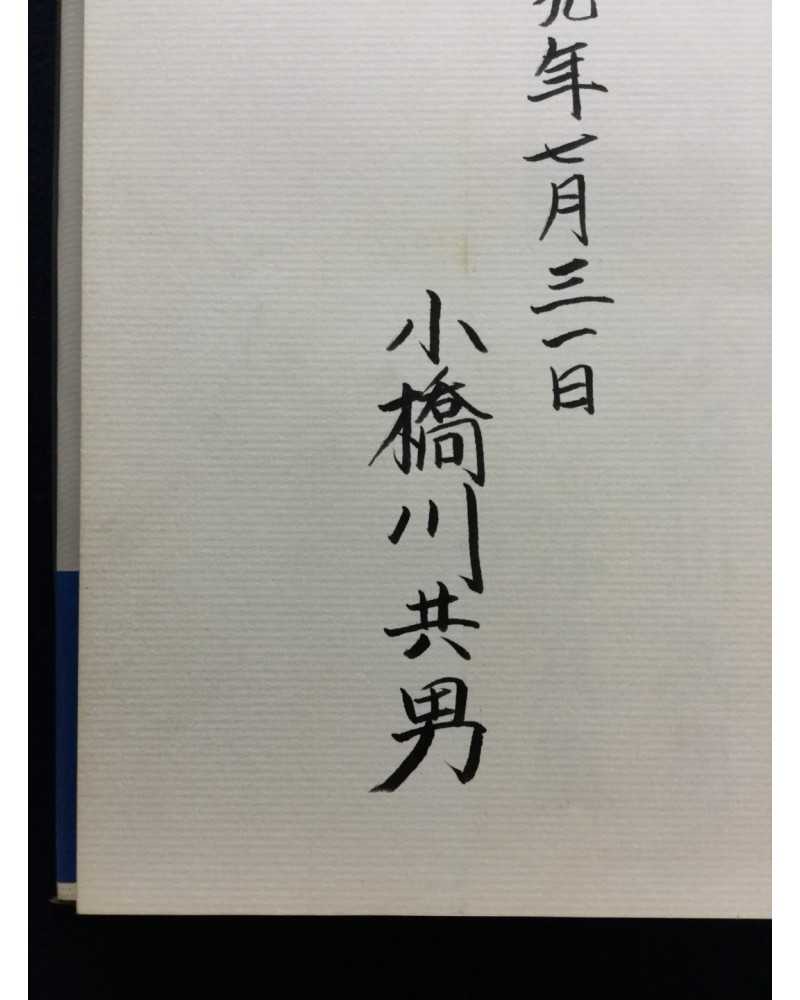 年七月三一日
小橋川共男